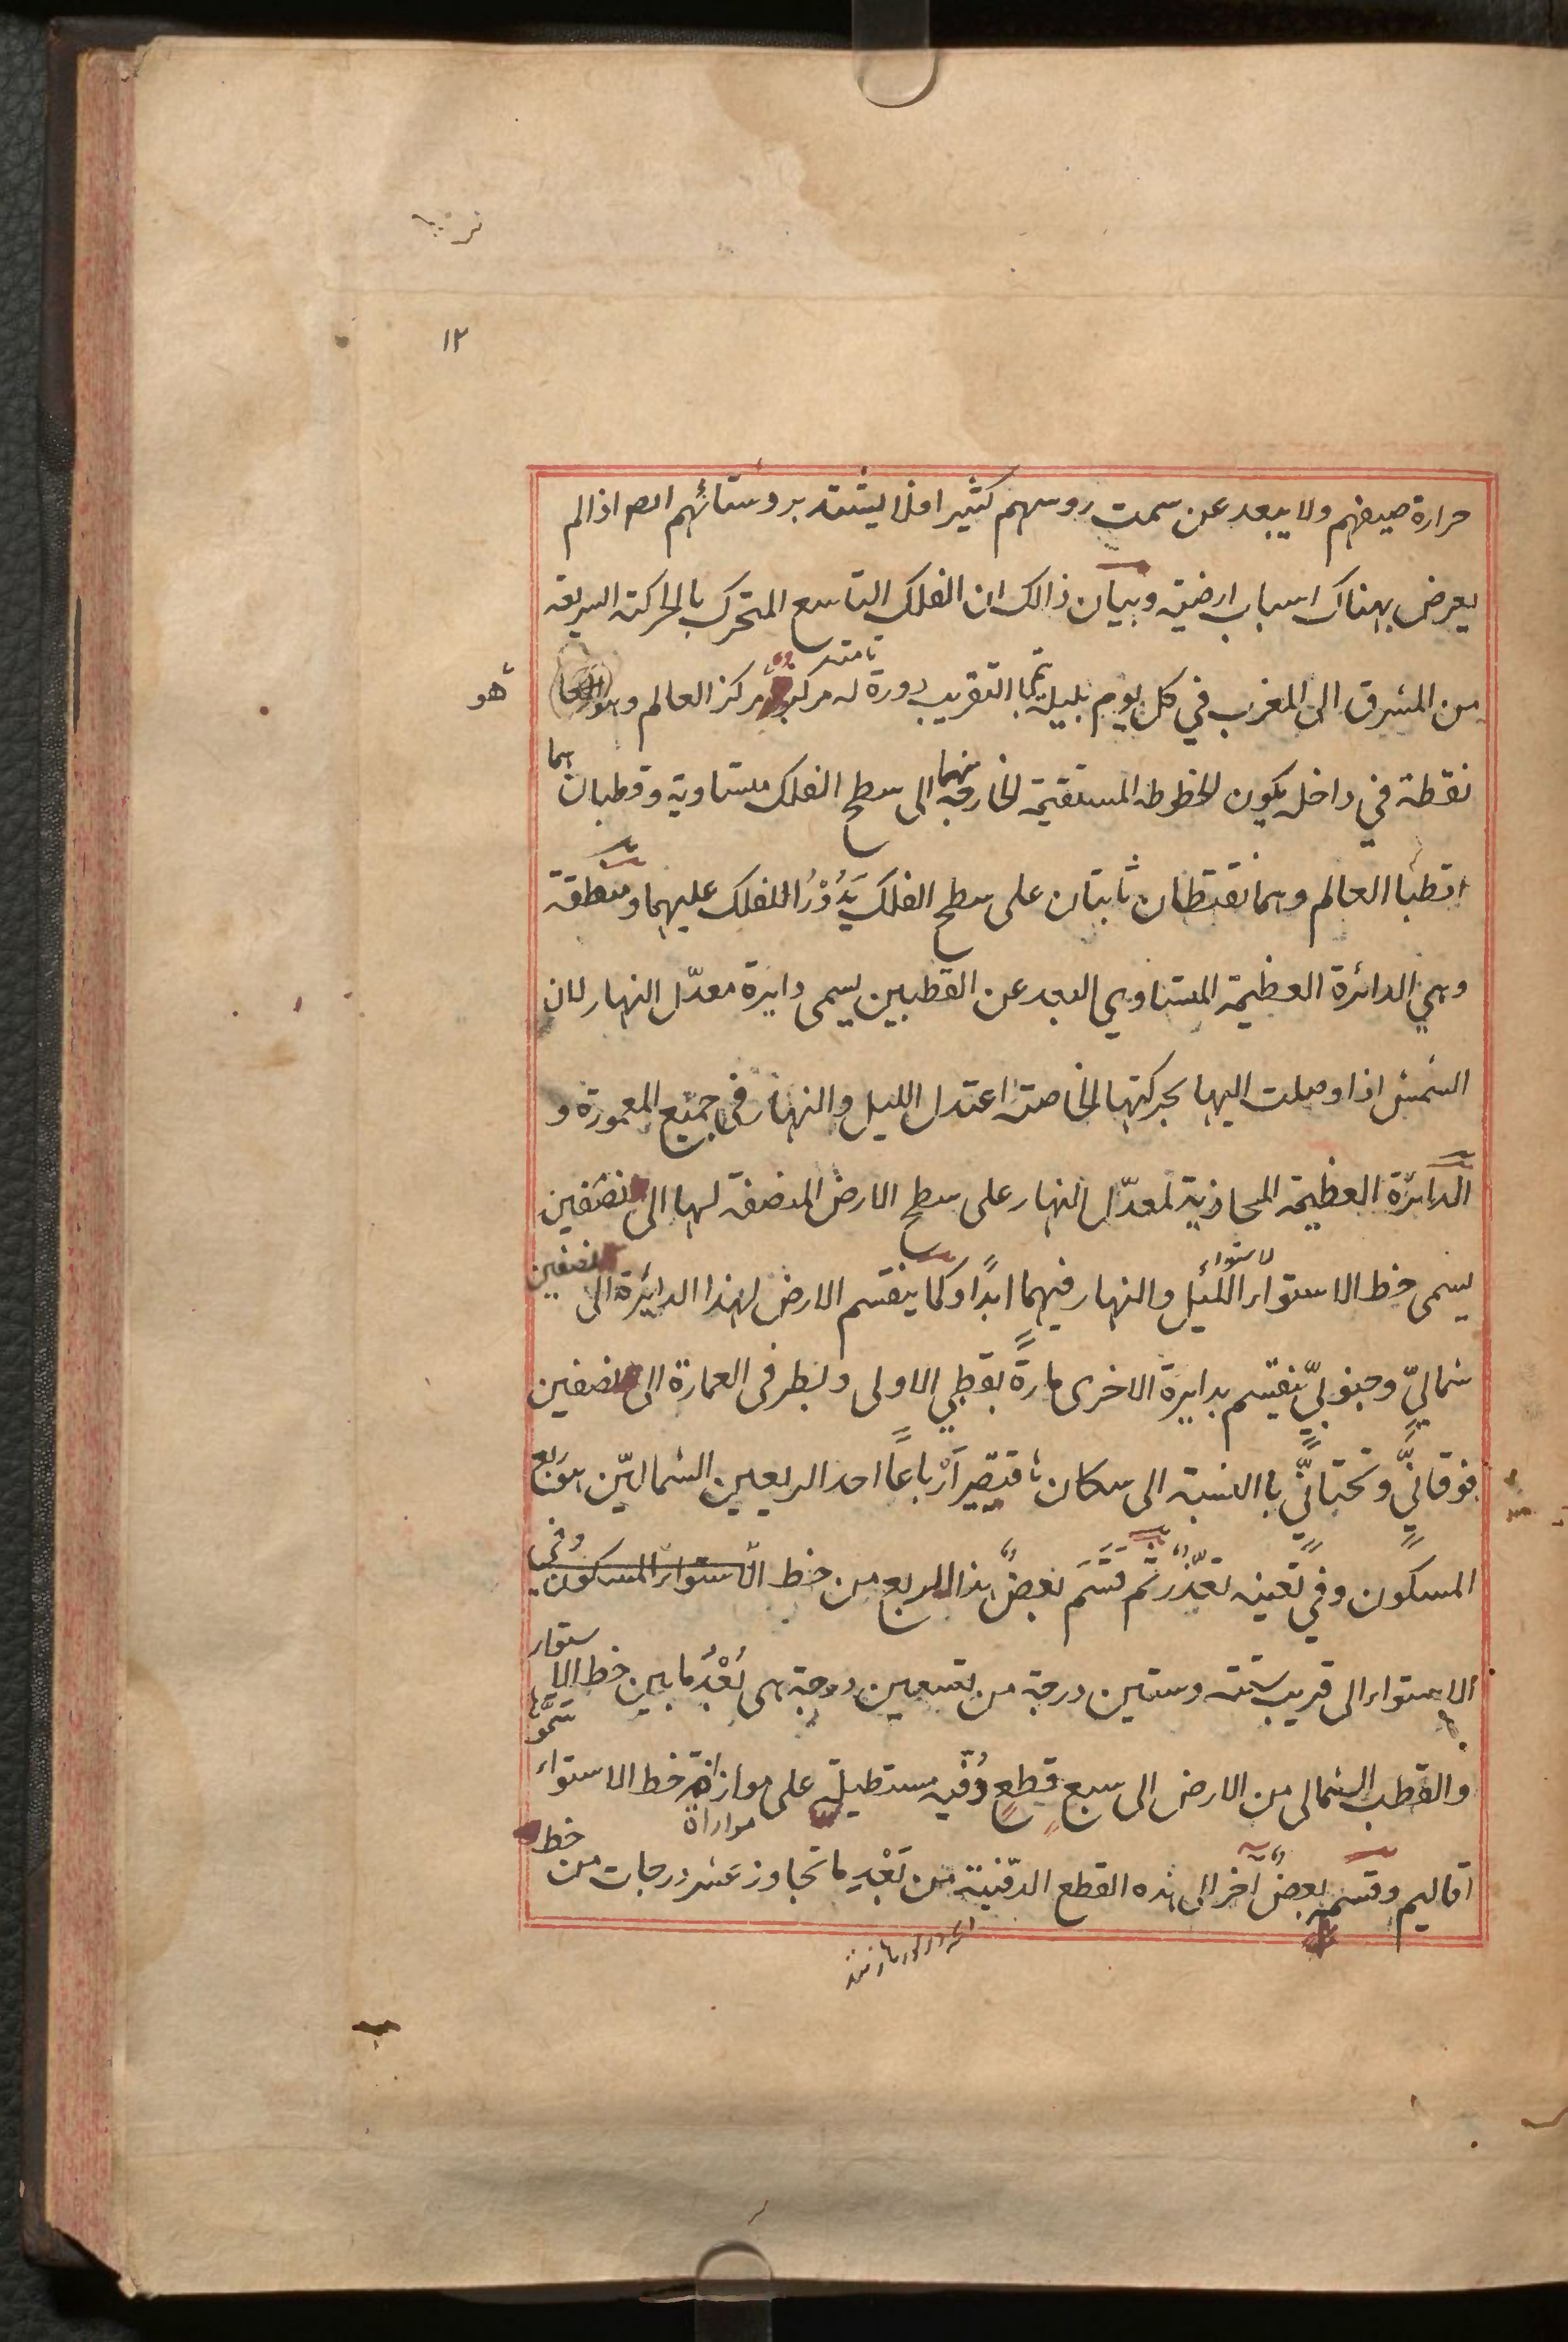 ١٢
حرارة صيفهم ولا يبعد عن سمت روسهم كثيرا فلا يشتد برد شتائهم اللهم اذا لم
يعرض هناك اسباب ارضية وبيان ذالك ان الفلك التاسع المتحرك بالحركة السريعة
من المشرق الى المغرب في كل يوم بليلة بالتقريب دورة تامة له مركز مركز العالم وهو
هو
نقطة في داخله يكون الخطوط المستقيمة الخارجة منهما الى سطح الفلك متساوية وقطبان هما
قطبا العالم وهما نقطتان ثابتان على سطح الفلك يَدُوْرُ الفلك عليهما ومنطقة
وهي الدائرة العظيمة المتساوي البعد عن القطبين يسمى دايرة معدّل النهار لان
الشمس اذا وصلت اليها بحركتها الخاصة اعتدل الليل والنهار في جميع المعمورة و
الدائرة العظيمة المحاذية لمعدّل النهار على سطح الارض المنصفة لها الى نصفين
يسمى خط الاستواء لاستواء الليل والنهار فيهما ابدًا وكما ينقسم الارض لهذا الدائرة الى نصفين
شماليٍّ وجنوبيٍّ ينقسم بدايرة الاخرى مارةً بقطبي الاولى وبطرفى العمارة الى نصفين
فوقانيٍّ وتحتانيٍّ باالنسبة الى سكان ناقتيصير اَرْباعًا احد الربعين الشماليّين هو ربع
المسكون وفي تعينه تعذّرٌ ثم قَسَّمَ بعضٌ هذا الربع من خط الاستواء المسكون وفي
الاستواء الى قريب ستة وستين درجة من تسعين درجة هى بُعْدُ ما بين خط الاستواء
والقطب الشمالى من الارض الى سبع قطعٍ دفيه مستطيلة على موازاة خط الاستواء
موازاة
اقاليم وقسمه بعضٌ آخر الى هذه القطع الدفينة من بُعْدٍ ما تجاوز عشر درجات من خط